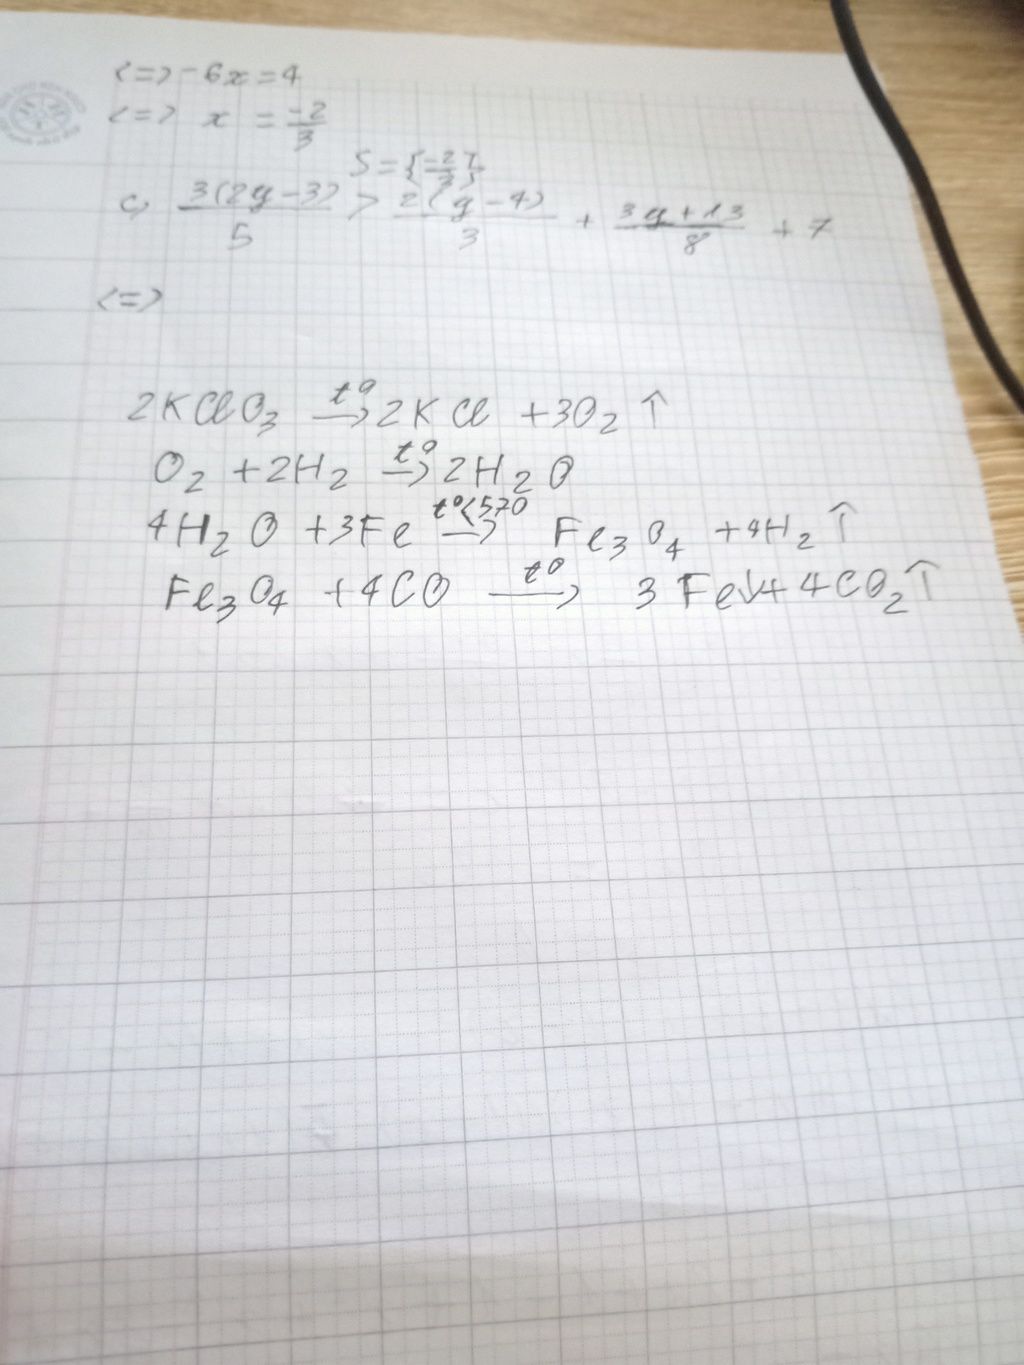 <=> -6x = 4
<=> x = -2/3
S = {-2/3}
c, 3(2y-3)/5 > 2(y-4)/3 + 3y+13/8 + 7
<=>
2KClO3 t°→ 2KCl + 3O2 ↑
O2 + 2H2 t°→ 2H2O
4H2O + 3Fe t°<570→ Fe3O4 + 4H2 ↑
Fe3O4 + 4CO t°→ 3Fe↓ + 4CO2 ↑